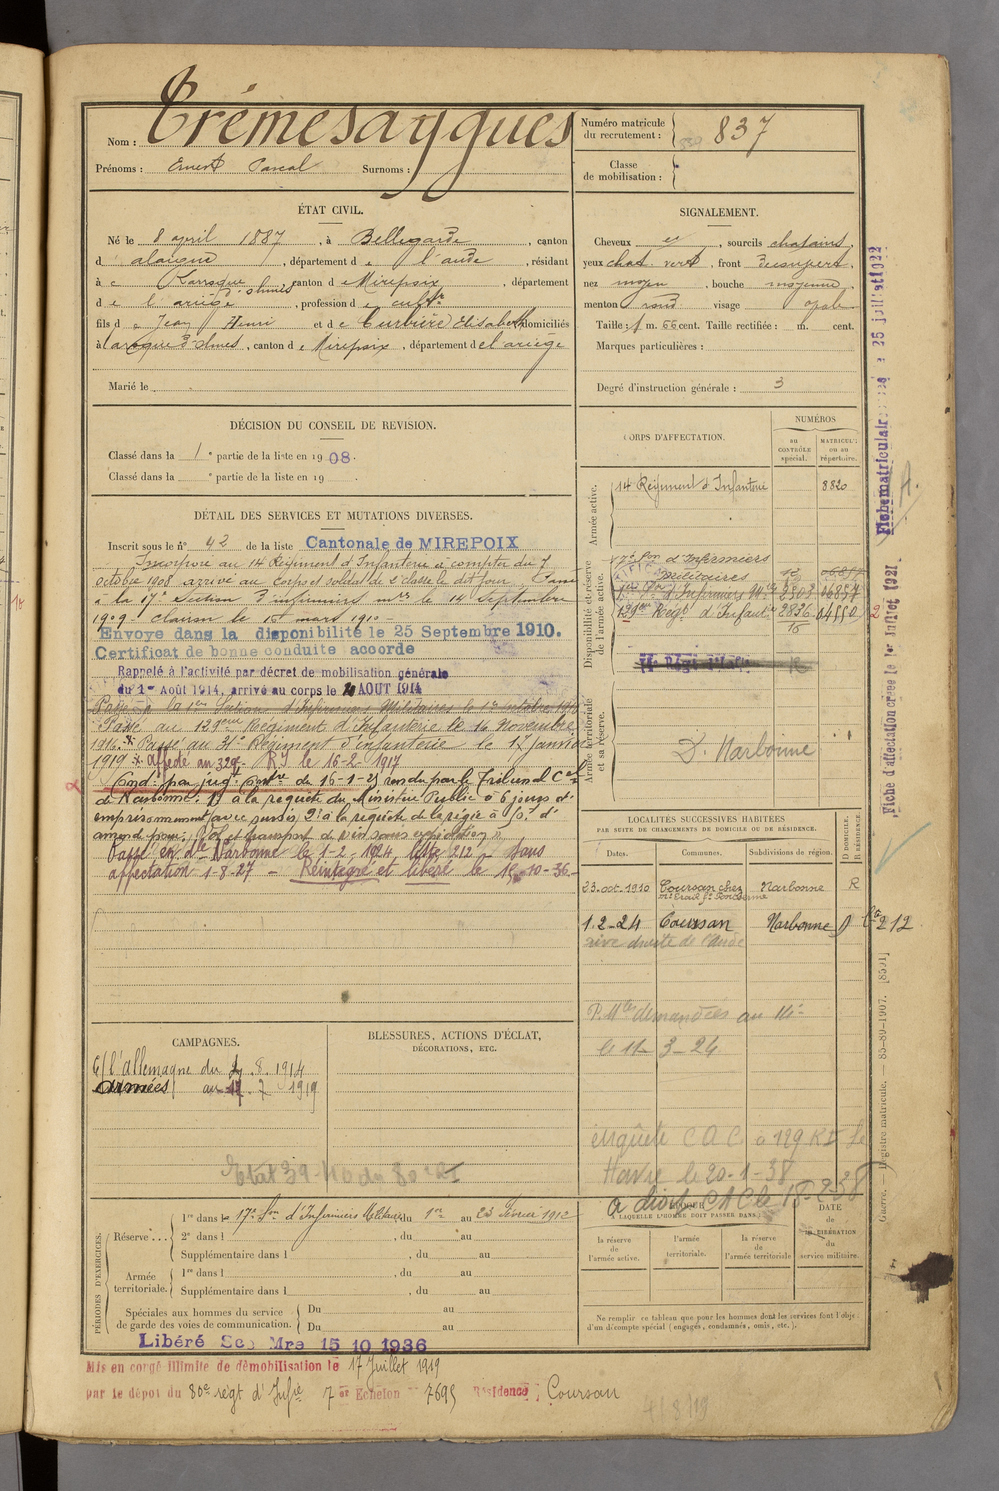 Nom : Trémesaygues
Prénoms : Ernest Pascal Surnoms :
Numéro matricule du recrutement : 837
Classe de mobilisation :
ÉTAT CIVIL.
Né le 8 april 1887, à Bellegarde, canton
d alaigne, département de l'aude, résidant
à Larroque d'olmes, canton de Mirepoix, département
de l'ariège, profession de cultr
fils de Jean Henri et de Curbière Elisabeth domiciliés
à laroque d'olmes, canton de Mirepoix, département de l'ariège
Marié le
SIGNALEMENT.
Cheveux et, sourcils chatains,
yeux chat. vert, front découvert,
nez moyen, bouche moyenne,
menton rond visage ovale
Taille : 1 m. 66 cent. Taille rectifiée : m. cent.
Marques particulières :
Degré d'instruction générale : 3
DÉCISION DU CONSEIL DE REVISION.
Classé dans la 1e partie de la liste en 1908.
Classé dans la e partie de la liste en 19
DÉTAIL DES SERVICES ET MUTATIONS DIVERSES.
Inscrit sous le n° 42 de la liste Cantonale de MIREPOIX
Incorporé au 14 Régiment d'Infanterie à compter du 7
octobre 1908 arrivé au corps et soldat de 2e classe le dit jour. Passé
à la 17e Section d'infirmiers mres le 14 septembre
1909. clairon le 15 mars 1910
Envoyé dans la disponibilité le 25 Septembre 1910.
Certificat de bonne conduite accordé
Rappelé à l'activité par décret de mobilisation générale
du 1er Août 1914, arrivé au corps le AOUT 1914
Passé à la 1ère Section d'Infirmiers Militaires le 1er octobre
Passé au 129ème Régiment d'Infanterie le 14 Novembre
1916. * Passé au 31e Régiment d'infanterie le 17 janvier
1919 * affecté au 329e R.I le 16-2-1917
Cond. par jugt Contre du 16-1-23 rendu par le Tribunal Cel
de Narbonne: 1) à la requête du Ministère Public à 6 jours d'
emprisonnement (avec sursis) 2) à la requête de la régie à
amende pour: "Vol et transport de vin sans expédition"
Passé en dle Narbonne le 1-2-1924 liste 212 Sans
affectation 1-8-27 - Réintégré et libéré le 15-10-36-
CORPS D'AFFECTATION.
NUMÉROS
AU CONTRÔLE spécial.
MATRICULE ou au répertoire.
Armée active.
14 Régiment d'Infanterie 8820
Disponibilité et réserve de l'armée active.
17e Son d'Infirmiers militaires
129ème Régt d'Infant 2836
Armée territoriale et sa réserve.
D. Narbonne
LOCALITÉS SUCCESSIVES HABITÉES
PAR SUITE DE CHANGEMENTS DE DOMICILE OU DE RÉSIDENCE.
Dates. Communes. Subdivisions de région. D DOMICILE. R RÉSIDENCE.
23-oct-1910 Coursan chez Narbonne R
1.2-24 Coursan Narbonne D
rive droite de l'Aude
le 11-3-24
enquête C A C à 129 RI Le
Havre le 20-1-38
a droit CAC le 15-2-38
CAMPAGNES.
C/ l'allemagne du 8. 1914
au 7 1919
BLESSURES, ACTIONS D'ÉCLAT,
DÉCORATIONS, ETC.
PÉRIODES D'EXERCICES.
Réserve ... 1re dans la 17e Son d'Infirmiers Militaires, du 1er au 23 février 1912
2e dans l , du au
Supplémentaire dans l , du au
Armée territoriale. 1re dans l , du au
Supplémentaire dans l , du au
Spéciales aux hommes du service de garde des voies de communication. Du au
Du au
À LAQUELLE L'HOMME DOIT PASSER DANS :
la réserve de l'armée active.
l'armée territoriale.
la réserve de l'armée territoriale
DATE de LIBÉRATION du service militaire.
Ne remplir ce tableau que pour les hommes dont les services font l'objet
d'un décompte spécial (engagés, condamnés, omis, etc.).
Libéré Sce Mre 15 10 1936
Mis en congé illimité de démobilisation le 17 Juillet 1919
par le dépôt du 80e régt d'Infie 7 Echelon 7695 Résidence Coursan
Fiche d'affectation créée le 1er Juillet 1921
Guerre. — Registre matricule. — 85-89-1907. [8591]